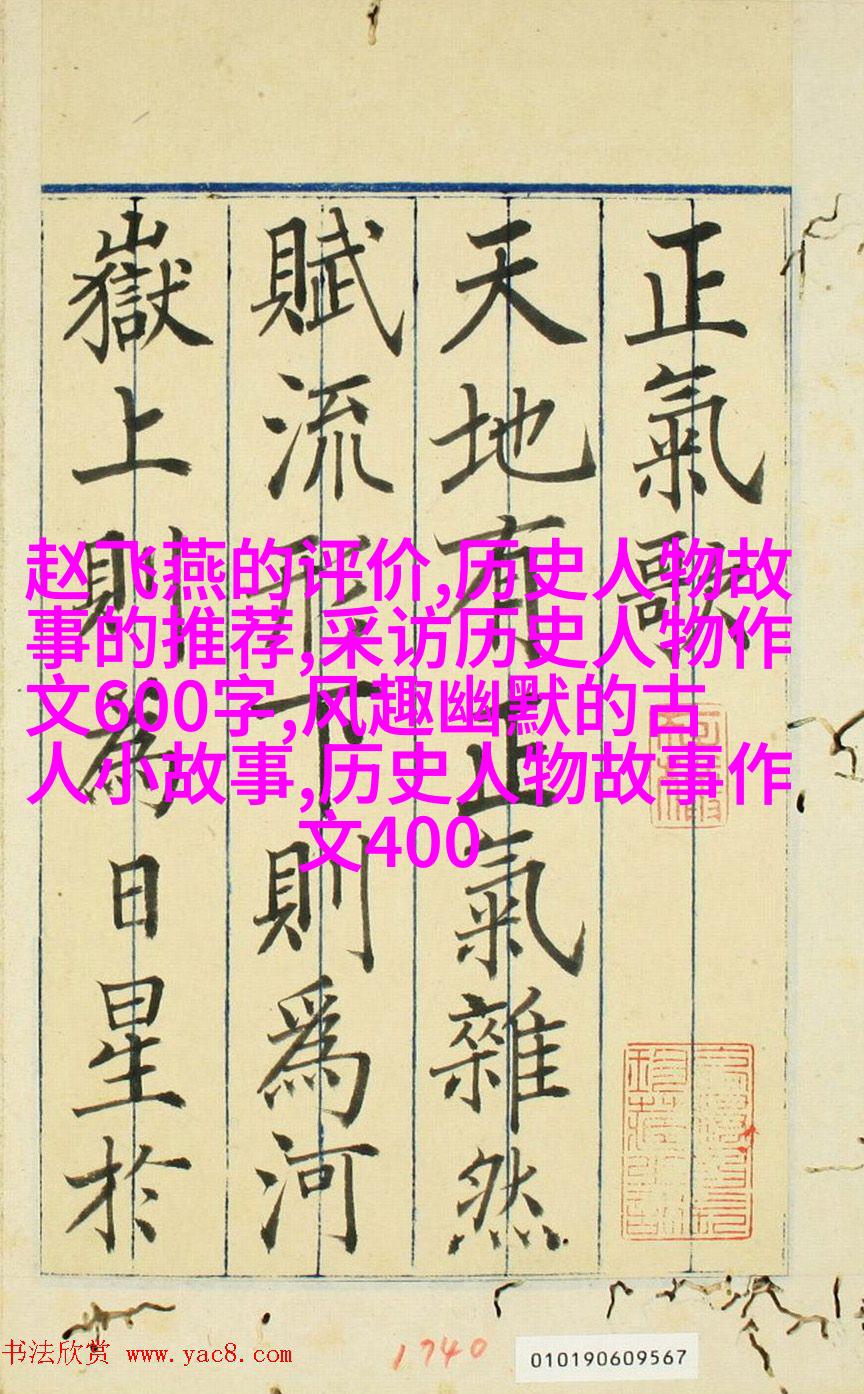 正氣歌
天地有正氣雜然
賦流形下則爲河
嶽上則為日星於
赵飞燕的评价,历史人物故
事的推荐,采访历史人物作
文600字,风趣幽默的古
人小故事,历史人物故事作
文400
书法欣赏 www.yac8.com
1740
010190609567